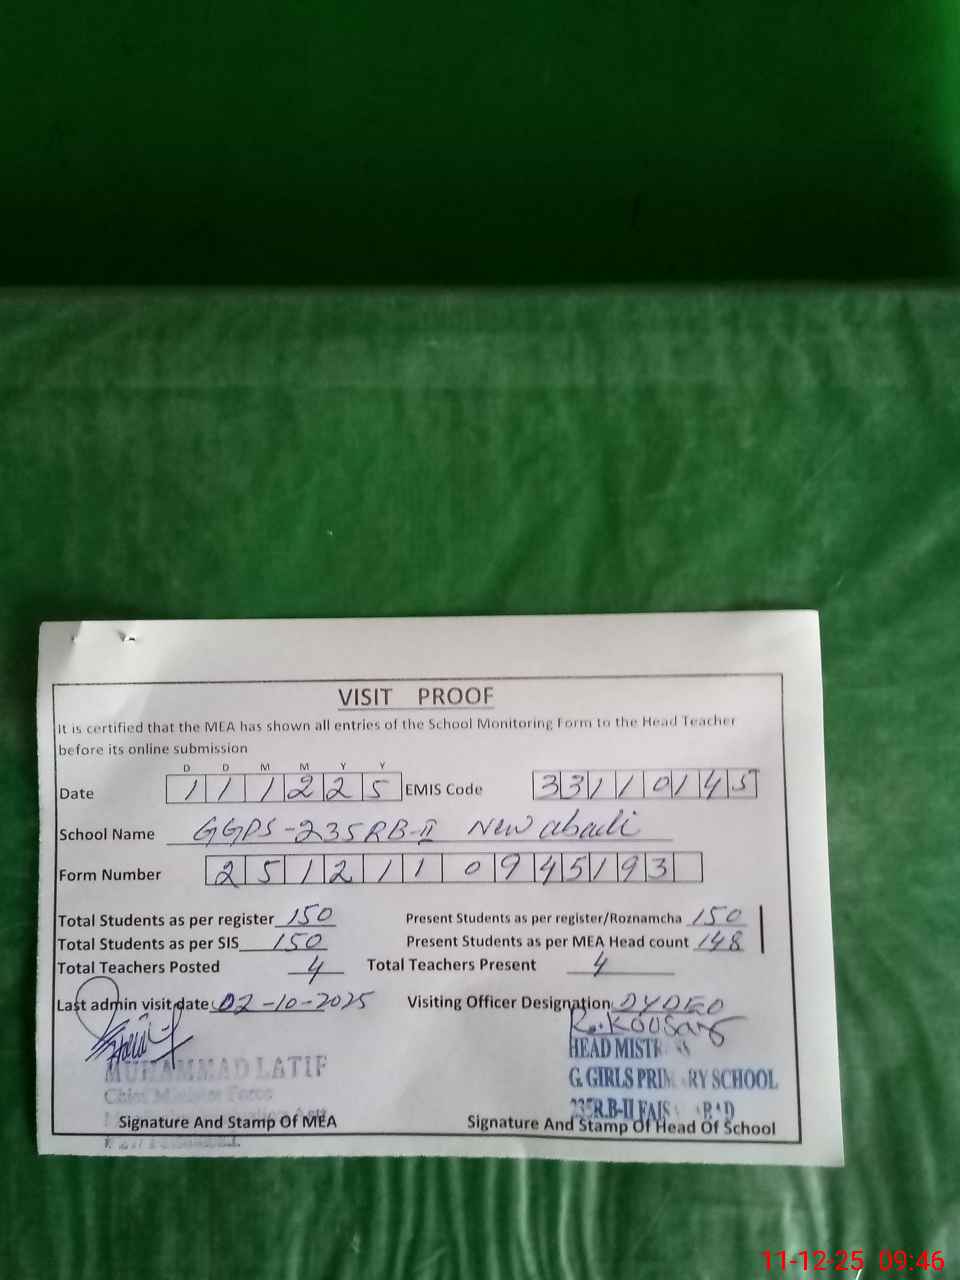 VISIT PROOF
It is certified that the MEA has shown all entries of the School Monitoring Form to the Head Teacher
before its online submission
D D M M Y Y
Date 111225 EMIS Code 33110145
School Name GGPS-235RB-II New abadi
Form Number 2512110945193
Total Students as per register 150 Present Students as per register/Roznamcha 150
Total Students as per SIS 150 Present Students as per MEA Head count 148
Total Teachers Posted 4 Total Teachers Present 4
Last admin visit date 02-10-2025 Visiting Officer Designation DYDEO
R. Kousar
MUHAMMAD LATIF HEAD MISTR
Chief Minister Force G. GIRLS PRIM RY SCHOOL
235R.B-II FAIS BAD
Signature And Stamp Of MEA Signature And Stamp Of Head Of School
11-12-25 09:46